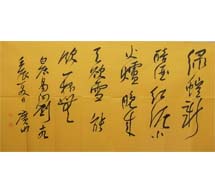 绿蚁新
醅酒红泥小
火炉晚来
天欲雪能
饮一杯无
白居易问刘十九